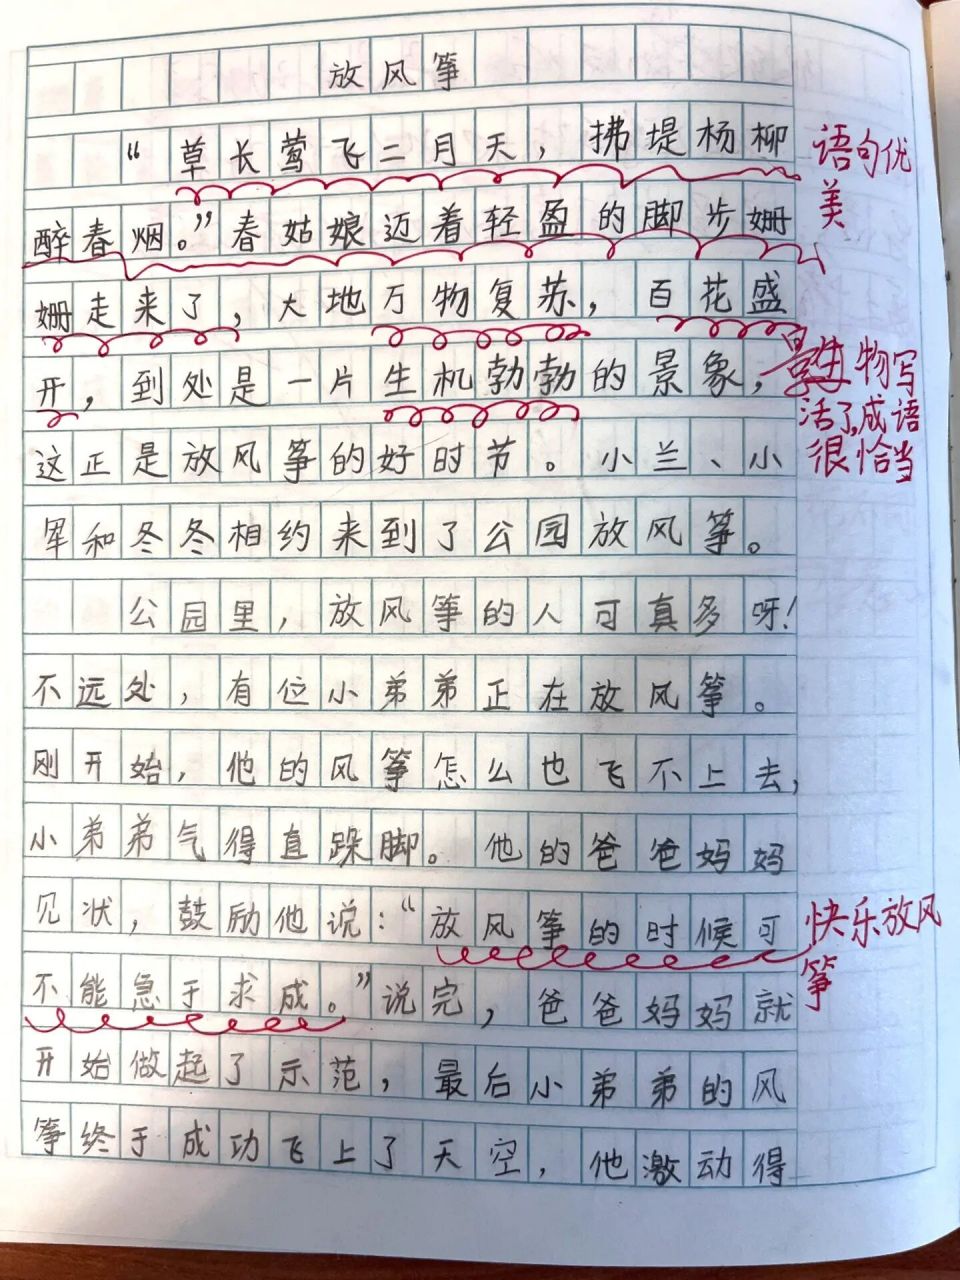 放风筝
“草长莺飞二月天，拂堤杨柳
醉春烟。”春姑娘迈着轻盈的脚步姗
姗走来了，大地万物复苏，百花盛
开，到处是一片生机勃勃的景象，
这正是放风筝的好时节。小兰、小
军和冬冬相约来到了公园放风筝。
公园里，放风筝的人可真多呀！
不远处，有位小弟弟正在放风筝。
刚开始，他的风筝怎么也飞不上去，
小弟弟气得直跺脚。他的爸爸妈妈
见状，鼓励他说：“放风筝的时候可
不能急于求成。”说完，爸爸妈妈就
开始做起了示范，最后小弟弟的风
筝终于成功飞上了天空，他激动得
语句优
美
物写
活了,成语
很恰当
快乐放风
筝